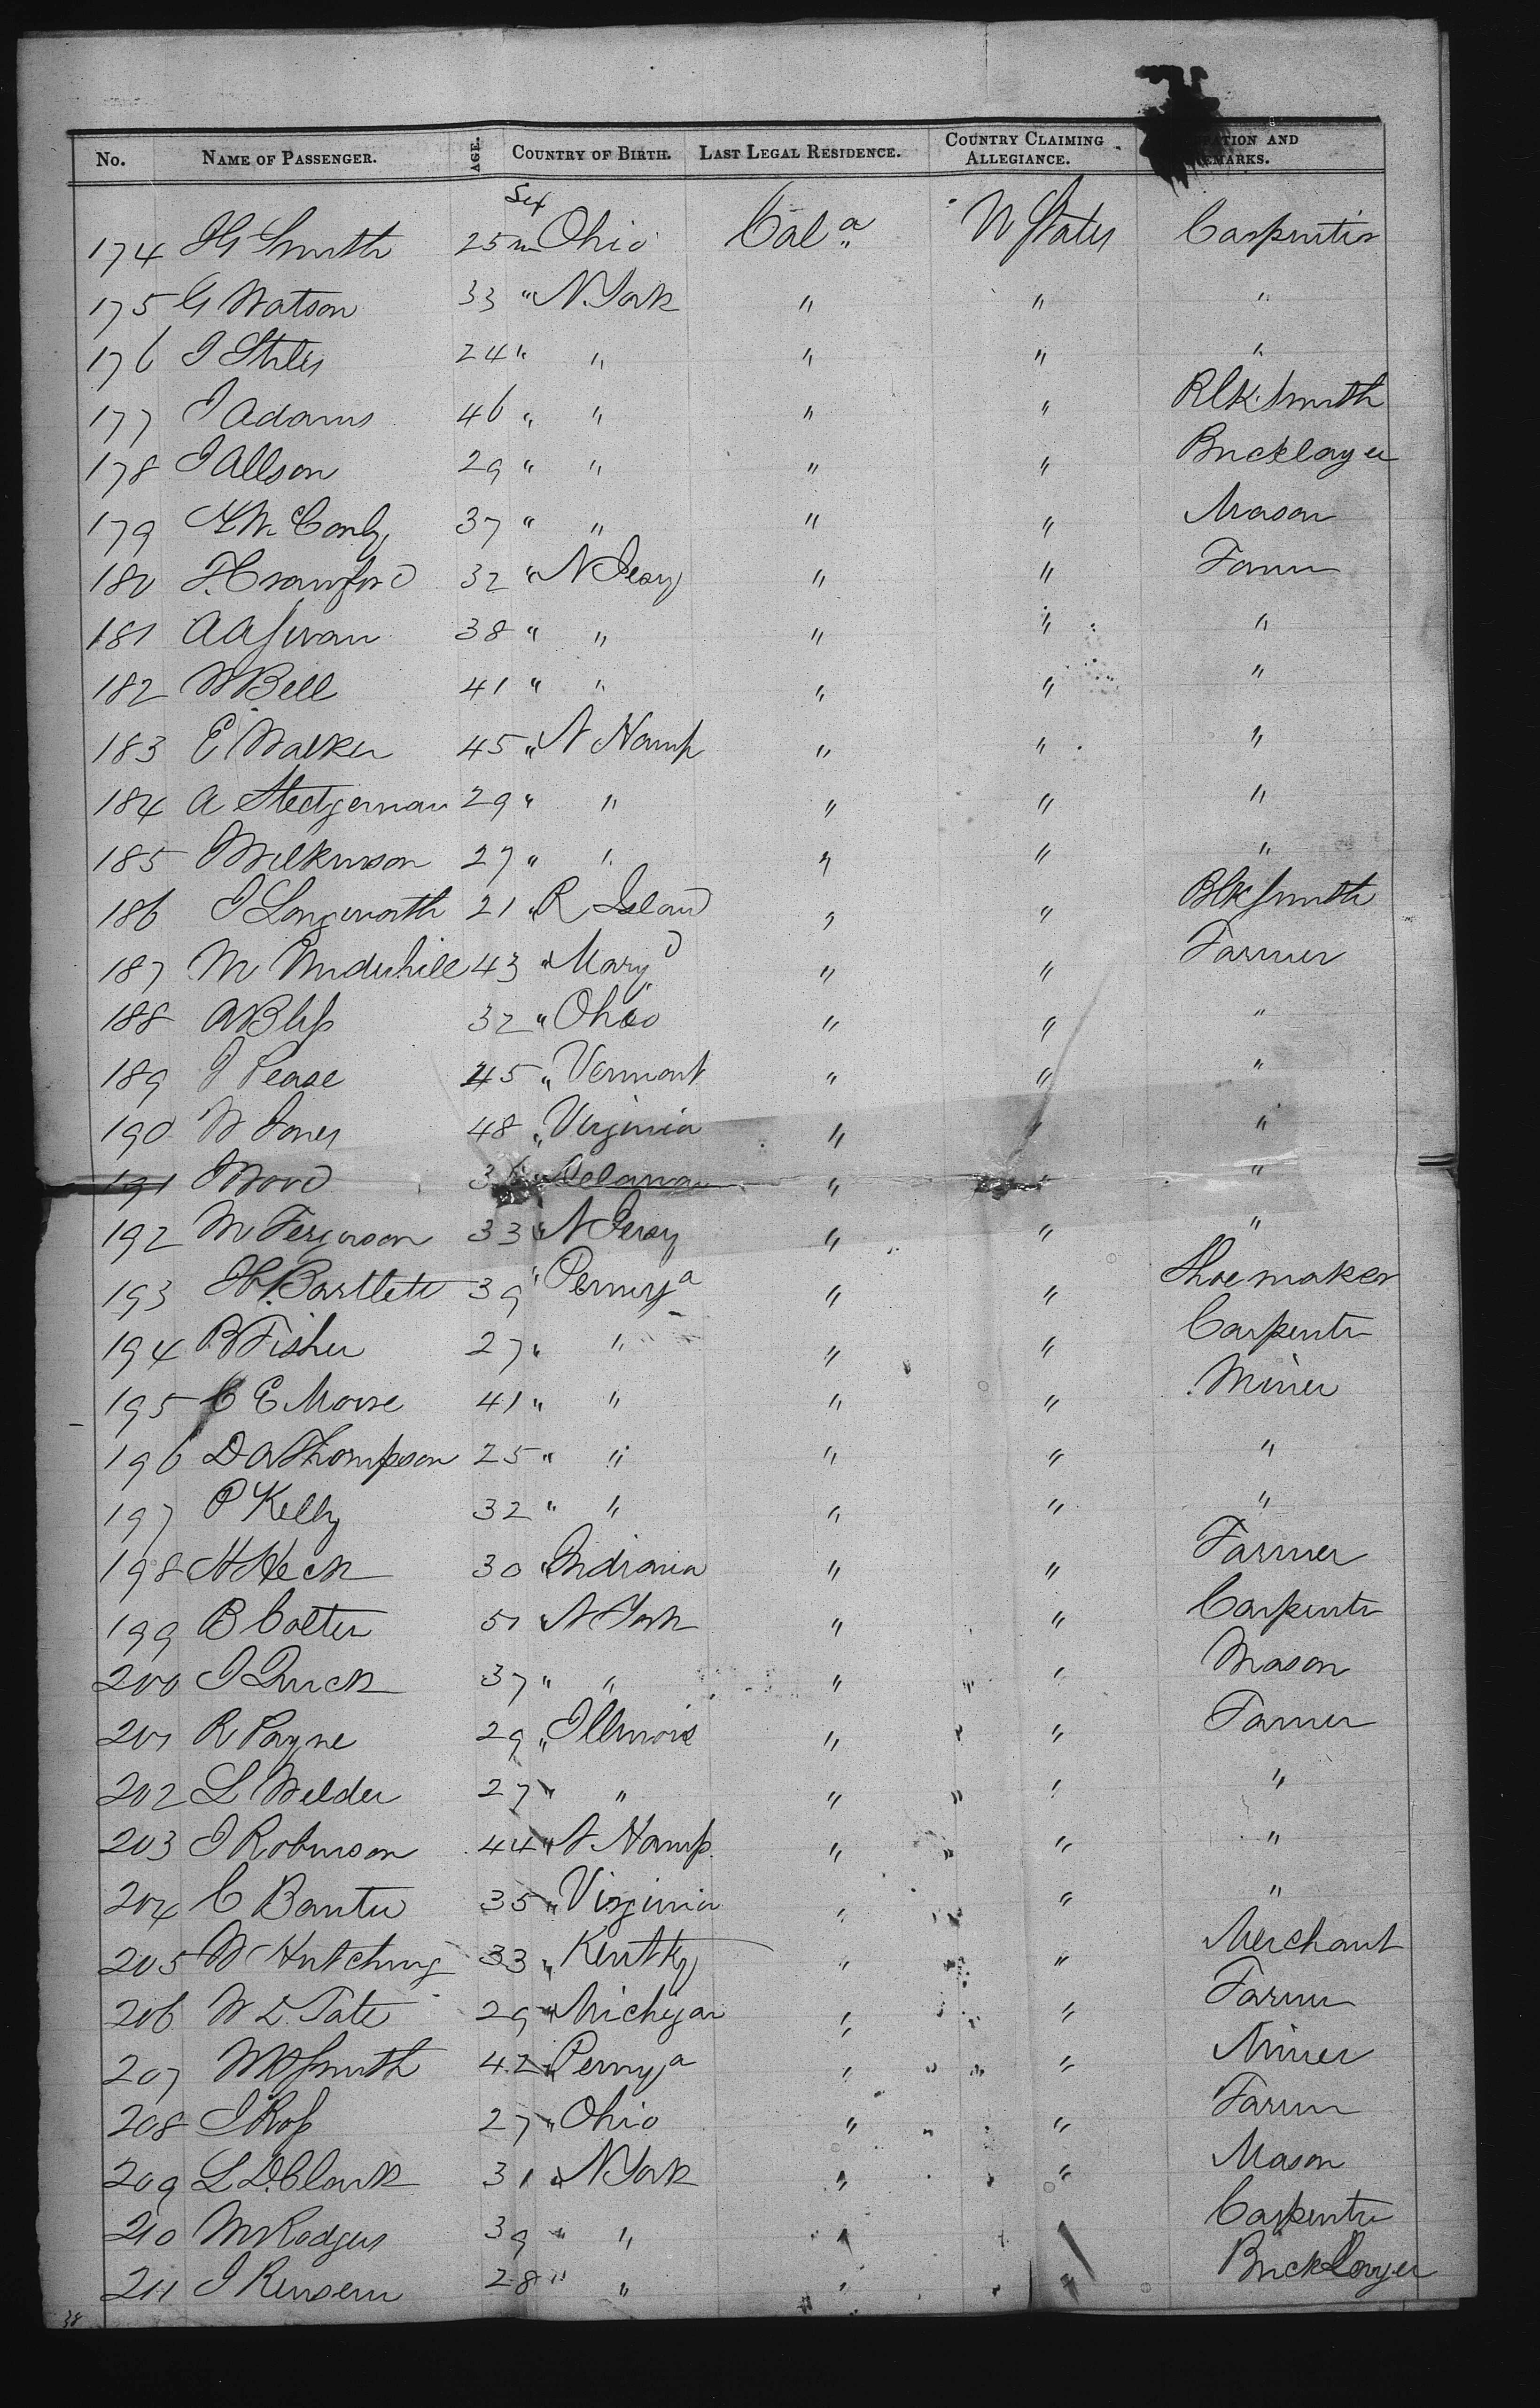 No. NAME OF PASSENGER. AGE. COUNTRY OF BIRTH. LAST LEGAL RESIDENCE. COUNTRY CLAIMING ALLEGIANCE. ATION AND EMARKS.
Sex
174 H Smith 25 m Ohio Cala U States Carpenter
175 G Watson 33 " N. York " " "
176 J Stiles 24 " " " " "
177 J Adams 46 " " " " Blk Smith
178 J Allson 29 " " " " Bricklayer
179 37 " " " " Mason
180 F. Crawford 32 " N Jersy " " Farmer
181 A A Swan 38 " " " " "
182 W Bell 41 " " " " "
183 E Walker 45 " N Hamp " " "
184 A Stedgeman 29 " " " " "
185 Wilkinson 27 " " " " "
186 J Longworth 21 " R Island " " Blk Smith
187 M Underhill 43 " Maryd " " Farmer
188 A Bliss 32 " Ohio " " "
189 J Pease 45 " Vermont " " "
190 W Jones 48 " Virginia " " "
191 Wood 36 " Delaware " " "
192 M Ferguson 33 " N Jersy " " "
193 H. Bartlett 39 " Pennya " " Shoemaker
194 B Fisher 27 " " " " Carpentr
195 C E Moore 41 " " " " Miner
196 D A Thompson 25 " " " " "
197 P Kelly 32 " " " " "
198 H Heck 30 " Indiana " " Farmer
199 B Colter 51 " N York " " Carpentr
200 J Quick 37 " " " " Mason
201 R Payne 29 " Illinois " " Farmer
202 L Welder 27 " " " " "
203 J Robinson 44 " N. Hamp. " " "
204 C Banter 35 " Virginia " " "
205 W Hutching 33 " Kentky " " Merchant
206 W D. Tate 29 " Michigan " " Farmer
207 Smith 42 " Pennya " " Miner
208 J Ross 27 " Ohio " " Farmer
209 L D. Clark 31 " N York " " Mason
210 M Rodgers 39 " " " " Carpentr
211 J 28 " " " " Bricklayer
38